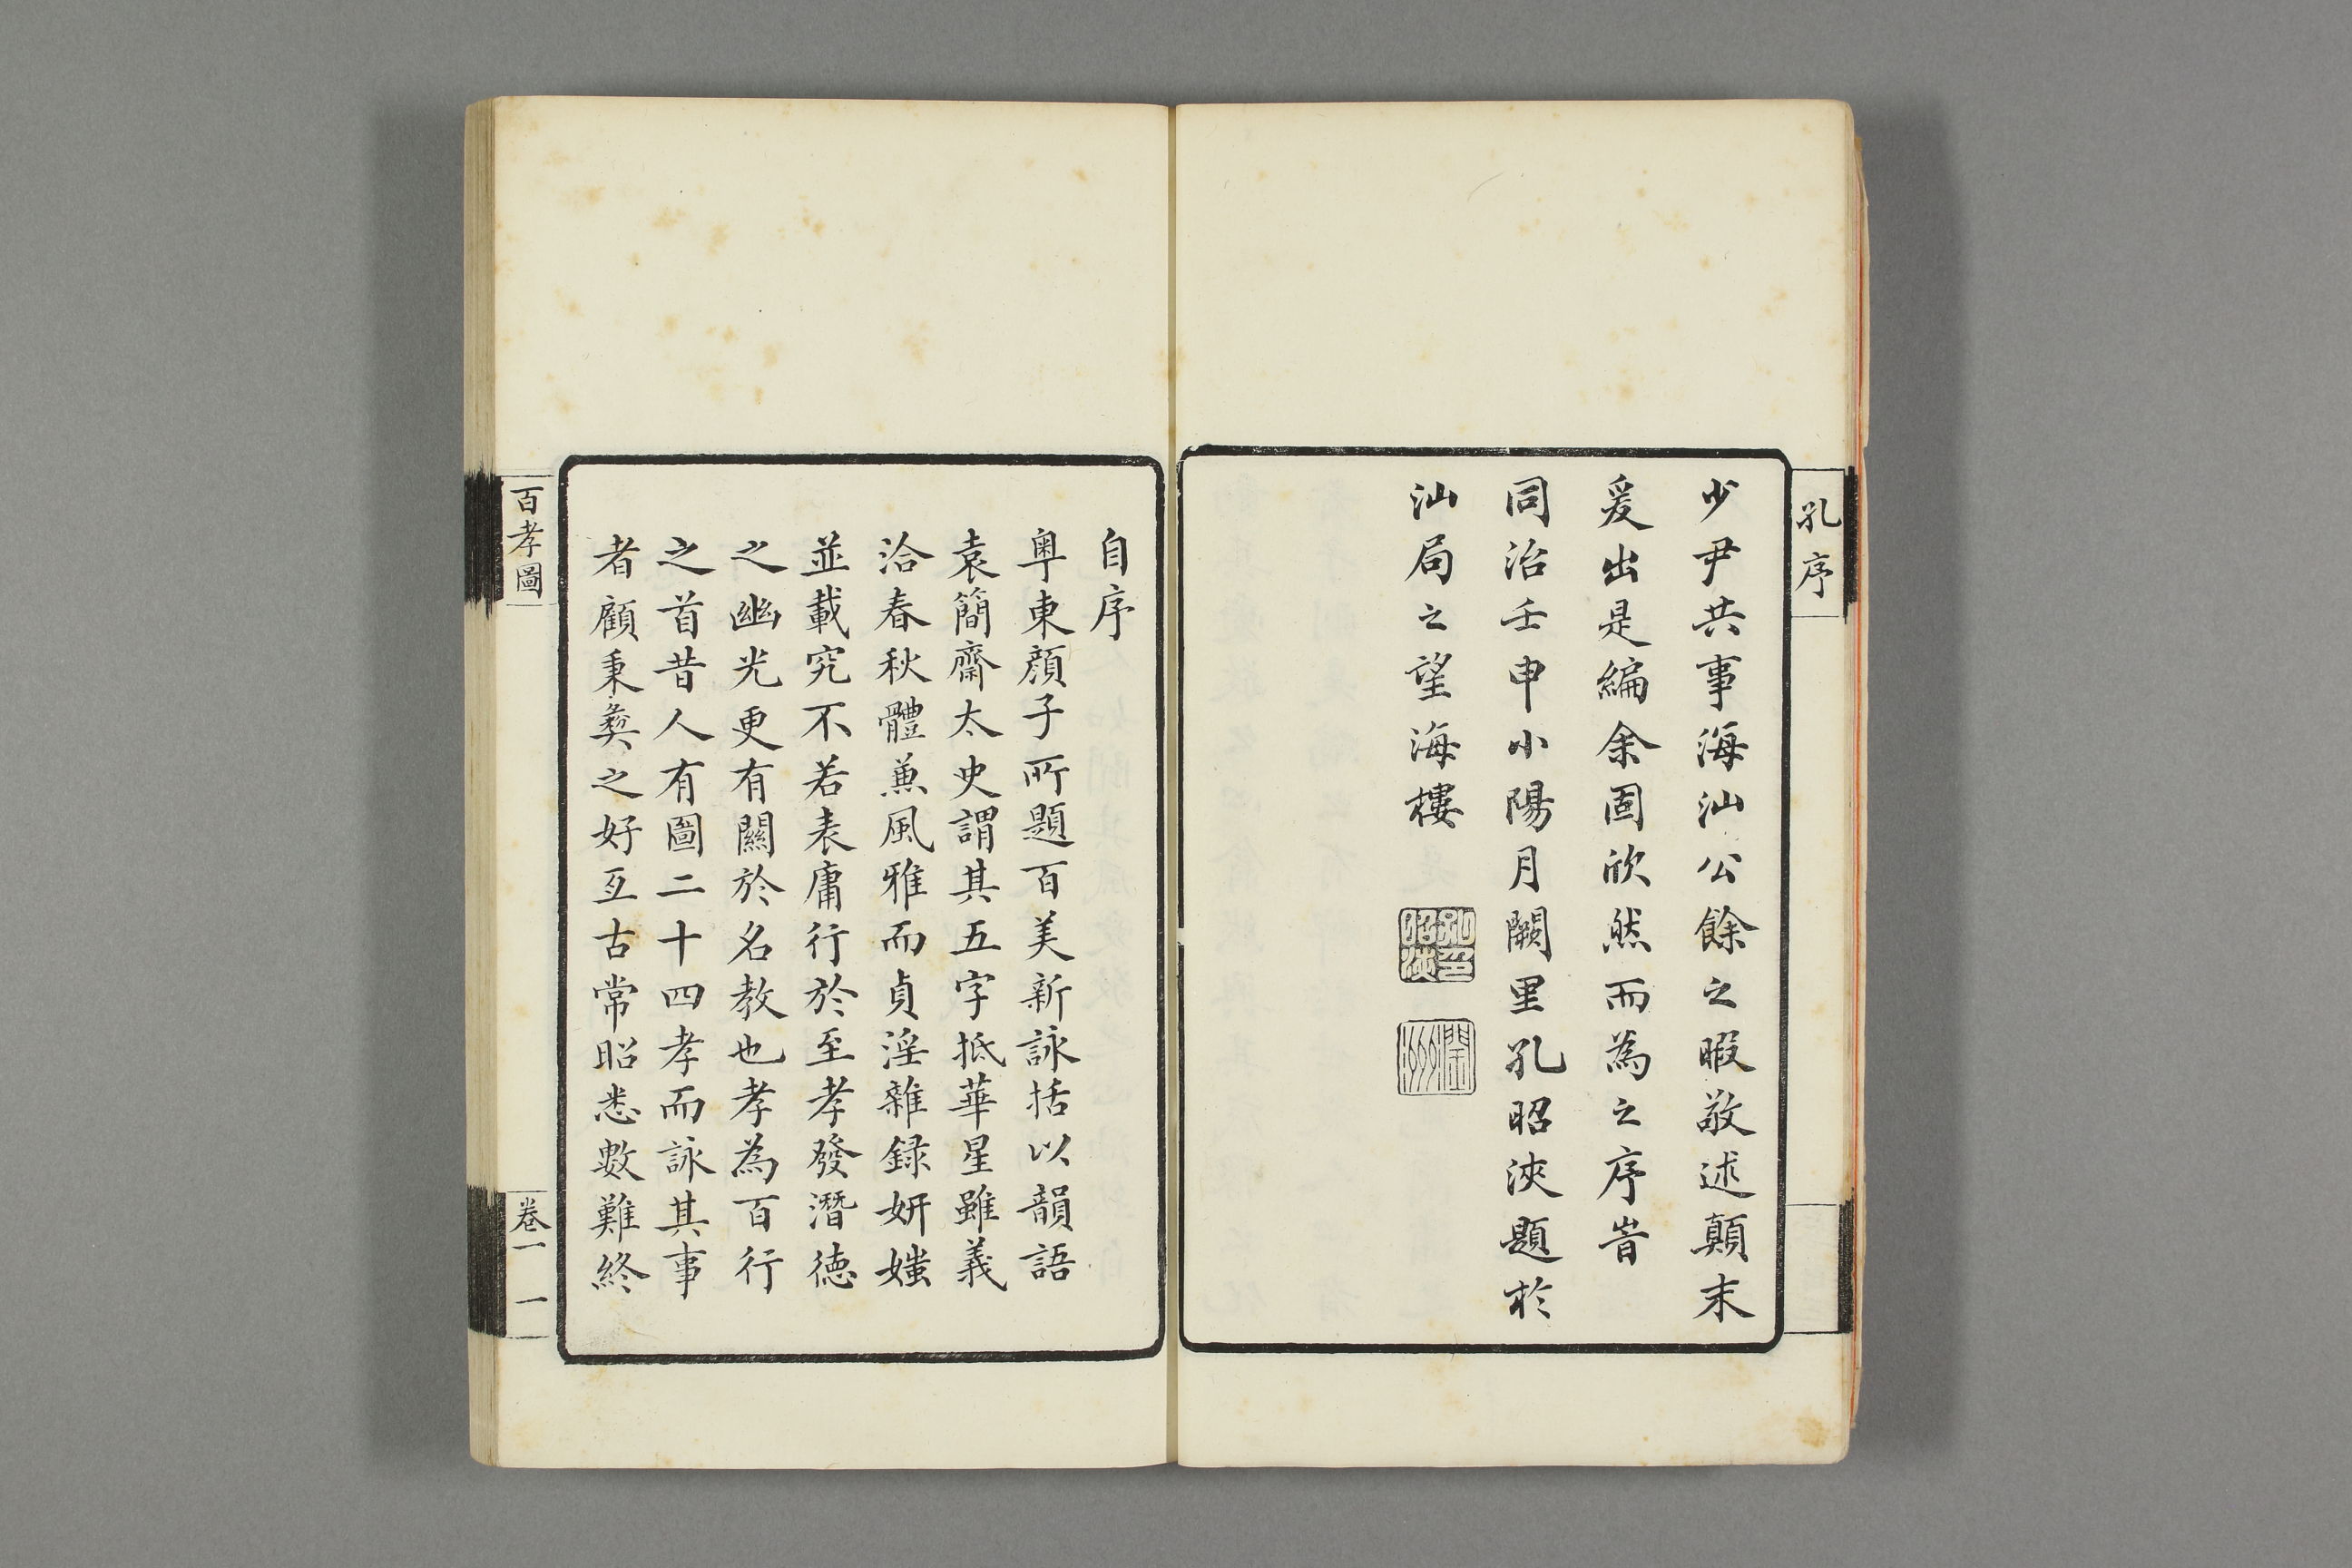 孔序
少尹共事海汕公餘之暇敬述顛末
爰出是編余固欣然而為之序旹
同治壬申小陽月闕里孔昭浹題於
汕局之望海樓
孔印昭浹
自序
粵東顏子所題百美新詠括以韻語
袁簡齋太史謂其五字抵華星雖義
洽春秋體兼風雅而貞淫雜録妍媸
並載究不若表庸行於至孝發潛德
之幽光更有關於名教也孝為百行
之首昔人有圖二十四孝而詠其事
者顧秉彝之好亙古常昭悉數難終
百孝圖
卷一 一